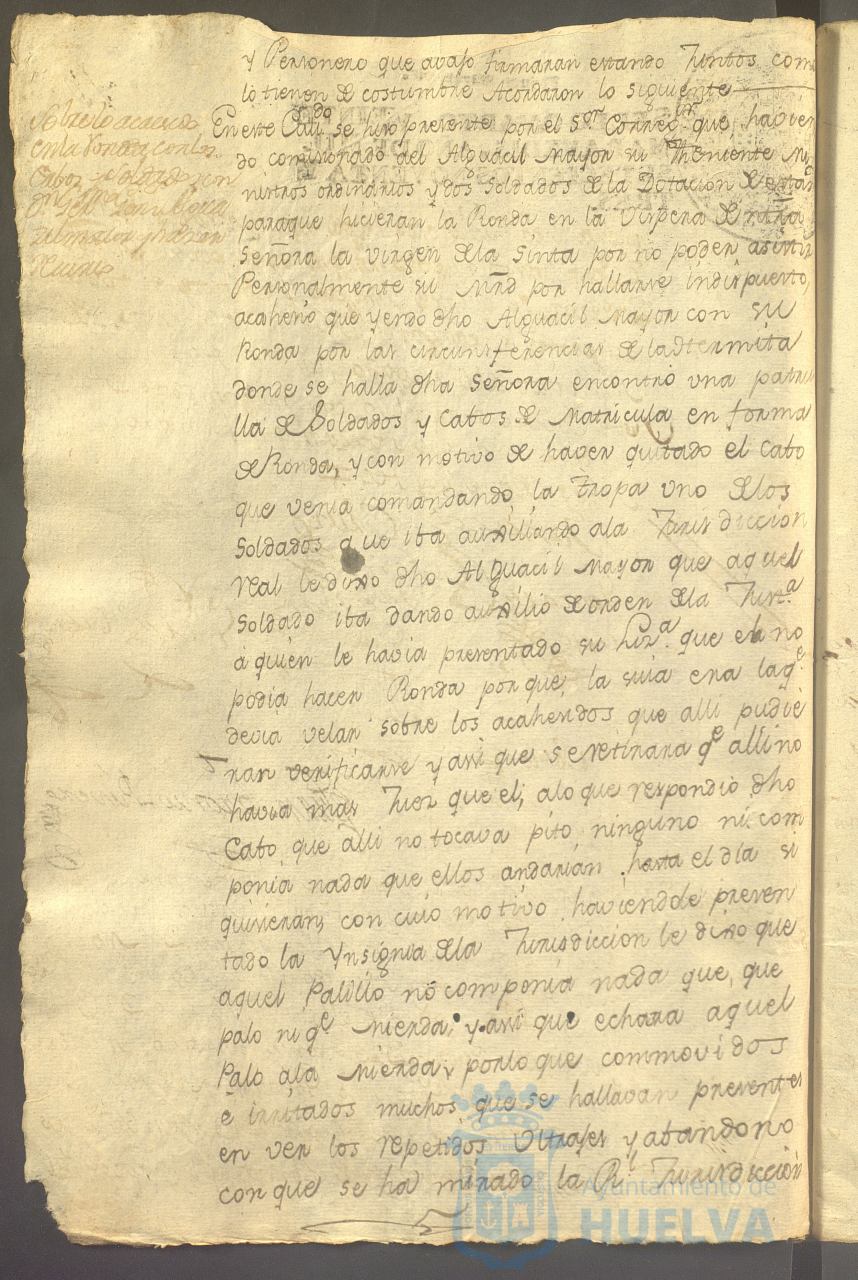 y Personero que avajo firmaran estando Juntos com
lo tienen de costumbre Acordaron lo siguiente
Sobre lo acaecido
en la Ronda con los
Cavos
En este Cavdo se hizo presente por el Sor Corregor que, havien
do comisionado del Alguacil Mayor su Theniente Mi
nistros ordinarios y dos Soldados de la Dotacion de esta
paraque hicieran la Ronda en la Vispera de ntra
Señora la virgen de la Sinta por no poder asistir
Personalmente su Mrd por hallarse indispuesto,
acahecio que yendo dho Alguacil Mayor con su
Ronda por las circunsferencias de la Hermita
donde se halla dha Señora encontró una patru
lla de Soldados y Cabos de Matricula en forma
de Ronda, y con motivo de haver quitado el Cabo
que venia comandando la Tropa uno delos
Soldados que iba auxiliando ala Jurisdiccion
real le dixo dho Alguacil Mayor que aquel
Soldado iba dando auxilio de orden dela Justa
á quien le havia presentado su que el no
podia hacer Ronda porque la suia era la qe
devia velar sobre los acahecidos que alli pudie
ran verificarse y assi que se retirara qe alli no
havia mas Juez que el, alo que respondió dho
Cabo que alli no tocava pito ninguno ni com
ponia nada que ellos andarian hasta el dia si
quisieran, con cuio motivo haviendole presen
tado la Ynsignia dela Jurisdiccion le dixo que
aquel Palillo no componia nada que, que
palo ni qe mierda, y assi que echara aquel
Palo ala mierda, porlo que commovidos
é irritados muchos que se hallavan presentes
en ver los repetidos Ultrajes y abandono
con que se ha mirado la Rl Jurisdiccion
Ayuntamiento de
HUELVA